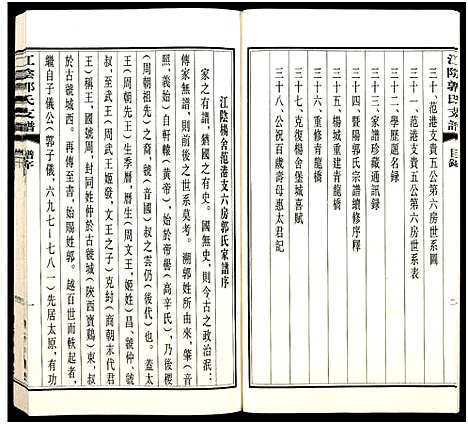 江陰郭氏支譜
目錄
三十、范港支貴五公第六房世系圖
三十一、范港支貴五公第六房世系表
三十二、學歷題名錄
三十三、家譜珍藏通訊録
三十四、暨陽郭氏宗譜續修序釋
三十五、楊城重建青龍橋
三十六、重修青龍橋
三十七、恢復楊舍堡城喜賦
三十八、公祝百歲壽母惠太君記
江陰楊舍范港支六房郭氏家譜序
家之有譜，猶國之有史。國無史，則今古之政治泯：
傳家無譜，則前後之世系莫考。溯郭姓所由來，肇（音
照，義始）自軒轅（黃帝），始於帝嚳（高辛氏），乃後稷
（周朝祖先）之裔，虢（音國）叔之雲仍（後代）也。蓋太
（周）季歷生（周）文王（姬姓）昌、虢仲、虢
叔，武王（周武王姬發，文王之子）既克紂（商朝末代君
王）有天下，國號周，封同姓仲於古虢城（陝西寶鷄）東，叔
於古虢城西。再傳至書，始賜姓郭。越百世而軼事無稽
繼自子儀公（郭子儀，六九七—七八一）先居太原，有功
江陰郭氏支譜
譜序